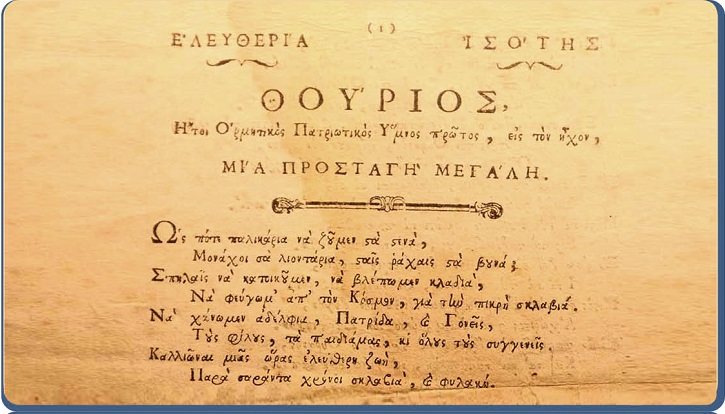 (1)
ἘΛΕΥΘΕΡΊΑ ἸΣΌΤΗΣ
ΘΟΎΡΙΟΣ,
Ἤτοι Ὁρμητικὸς Πατριωτικὸς Ὕμνος πρῶτος, εἰς τὸν ἦχον,
ΜΊΑ ΠΡΟΣΤΑΓῊ ΜΕΓΆΛΗ.
Ὣς πότε παλικάρια νὰ ζοῦμεν στὰ στενὰ,
Μονάχοι σὰ λιοντάρια, σταῖς ῥάχαις στὰ βουνά;
Σπηλαῖς νὰ κατοικοῦμεν, νὰ βλέπωμεν κλαδιὰ,
Νὰ φεύγωμ' ἀπ' τὸν Κόσμον, γιὰ τὴν πικρὴ σκλαβιά.
Νὰ χάνωμεν ἀδέλφια, Πατρίδα, καὶ Γονεῖς,
Τοὺς φίλους, τὰ παιδιάμας, κι ὅλους τοὺς συγγενεῖς.
Καλλιῶναι μιᾶς ὥρας ἐλεύθερη ζωὴ,
Παρὰ σαράντα χρόνοι σκλαβιὰ, καὶ φυλακή.